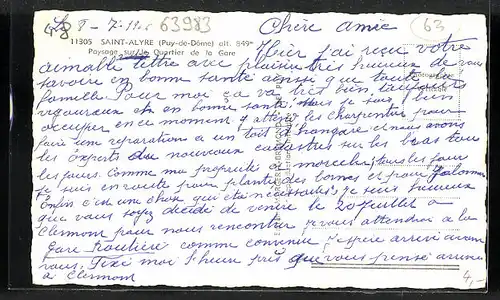 le 8-7-19
63983
63
Chère Amie
11305 SAINT-ALYRE (Puy-de-Dôme) alt. 849m
Paysage sur le Quartier de la Gare
Hier j'ai reçu votre
aimable lettre avec plaisir très heureux de vous
savoire en bonne santé ainsi que toute la
famille. Pour moi ça va très bien, toujours
vigoureux et en bonne santé. je suis bien
occuper en ce moment j' attend les charpentier pour
faire une réparation a un toit d'hangare et nous avons
les experts du nouveaux cadastres sur les bras tous
les jours. Comme ma propriété et morceler tous les jours
je suis en route pour planter des bornes et pour jalonner
Enfin c'est une chose qui été nécessaire. je suis heureux
que vous soyez décidé de venire le 20 juillet a
Clermont pour nous rencontrer je vous attendrai a la
Gare Routière comme convenu j'espère arrivé avant
vous. Fixé moi l'heure près que vous pensé arrivé
a Clermont
4,-